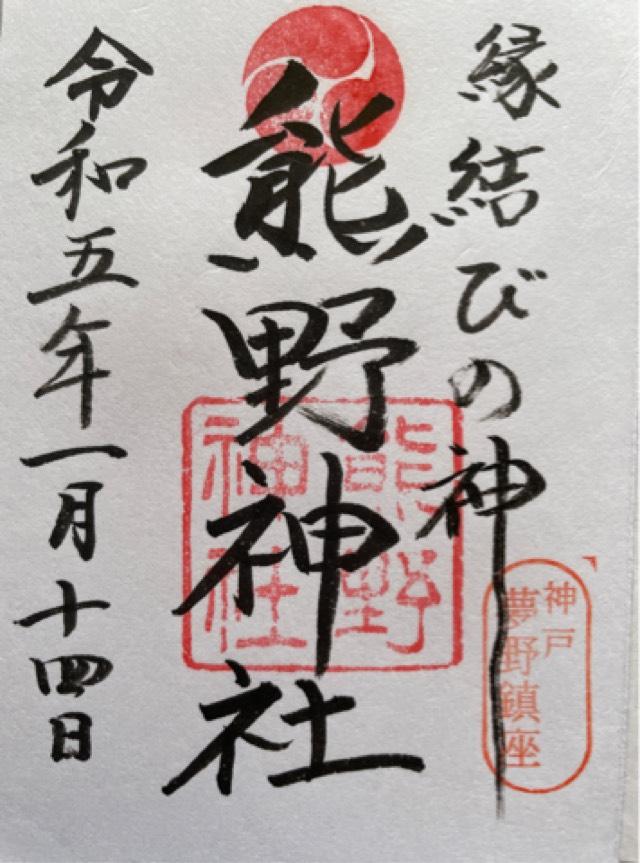 縁結びの神
神戸
夢野鎮座
熊野神社
熊野
神社
令和五年一月十四日